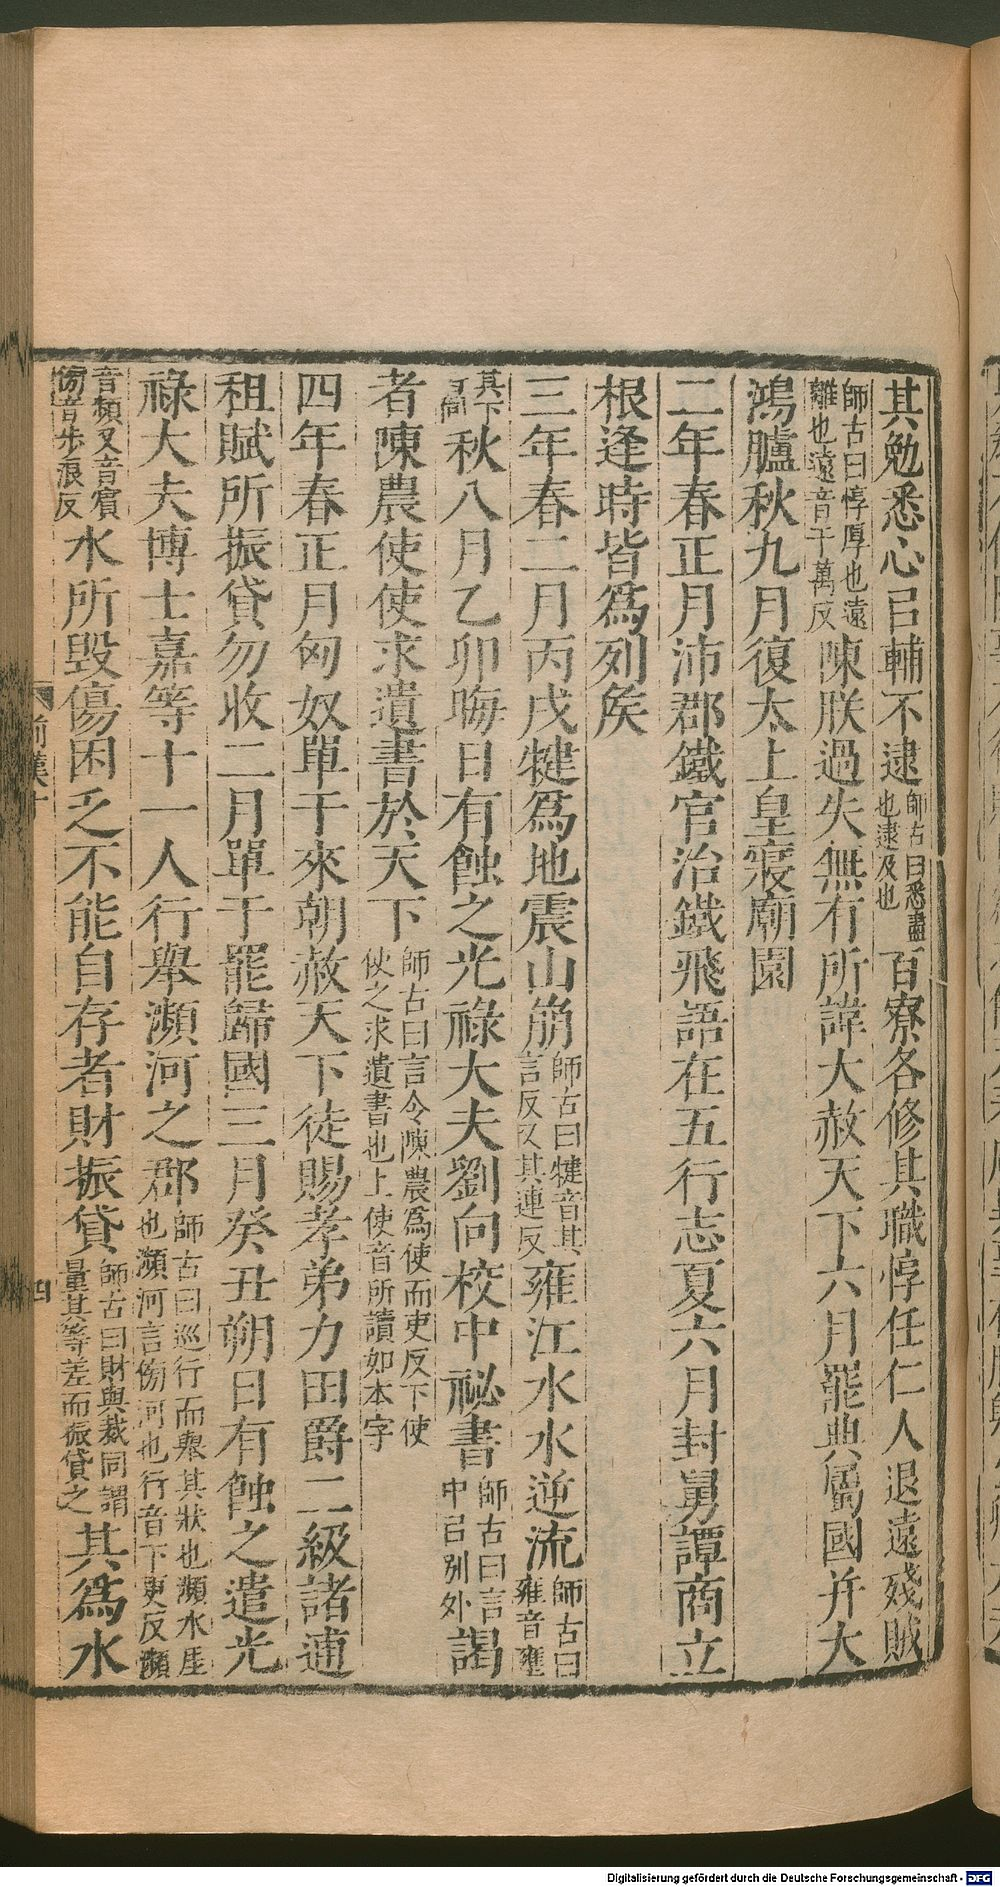 其勉悉心㠯輔不逮師古曰悉盡也逮及也百寮各修其職惇任仁人退遠殘賊
師古曰惇厚也遠離也遠音于萬反陳朕過失無有所諱大赦天下六月罷典屬國并大
鴻臚秋九月復太上皇寑廟園
二年春正月沛郡鐵官冶鐵飛語在五行志夏六月封舅譚商立
根逢時皆爲列矦
三年春二月丙戌犍爲地震山崩師古曰犍音其言反又其連反雍江水水逆流師古曰雍音壅
其下亦同秋八月乙卯晦日有蝕之光祿大夫劉向校中祕書師古曰言中㠯別外謁
者陳農使使求遺書於天下師古曰言令陳農爲使而使之求遺書也上使音所吏反下使讀如本字
四年春正月匈奴單于來朝赦天下徒賜孝弟力田爵二級諸逋
租賦所振貸勿收二月單于罷歸國三月癸丑朔日有蝕之遣光
祿大夫博士嘉等十一人行舉瀕河之郡師古曰巡行而舉其狀也瀕水厓也瀕河言傍河也行音下更反瀕
音頻又音賓傍音步浪反水所毀傷困乏不能自存者財振貸師古曰財與裁同謂量其等差而振貸之其爲水
前漢十
四
Digitalisierung gefördert durch die Deutsche Forschungsgemeinschaft - DFG